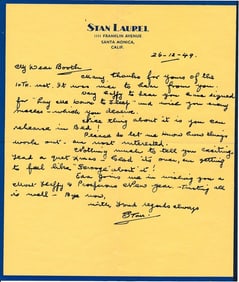 STAN LAUREL
1111 FRANKLIN AVENUE
SANTA MONICA,
CALIF.
26-12-49.
My Dear Booth:
Many thanks for yours of the
It was nice to hear from you.
Very happy to hear you have signed
for "Boy, she wants to sleep" and wish you every
success - which you deserve.
Nice thing about it is you can
rehearse in Bed!
Please do let me know how things
work out - am most interested.
Nothing much to tell you exciting.
Had a quiet Xmas - Glad it's over, am getting
to feel like "Scrooge" about it!
Eda joins me in wishing you a
Most Happy & Prosperous New Year - Trusting all
is well - Bye now,
with kind regards always
Stan.